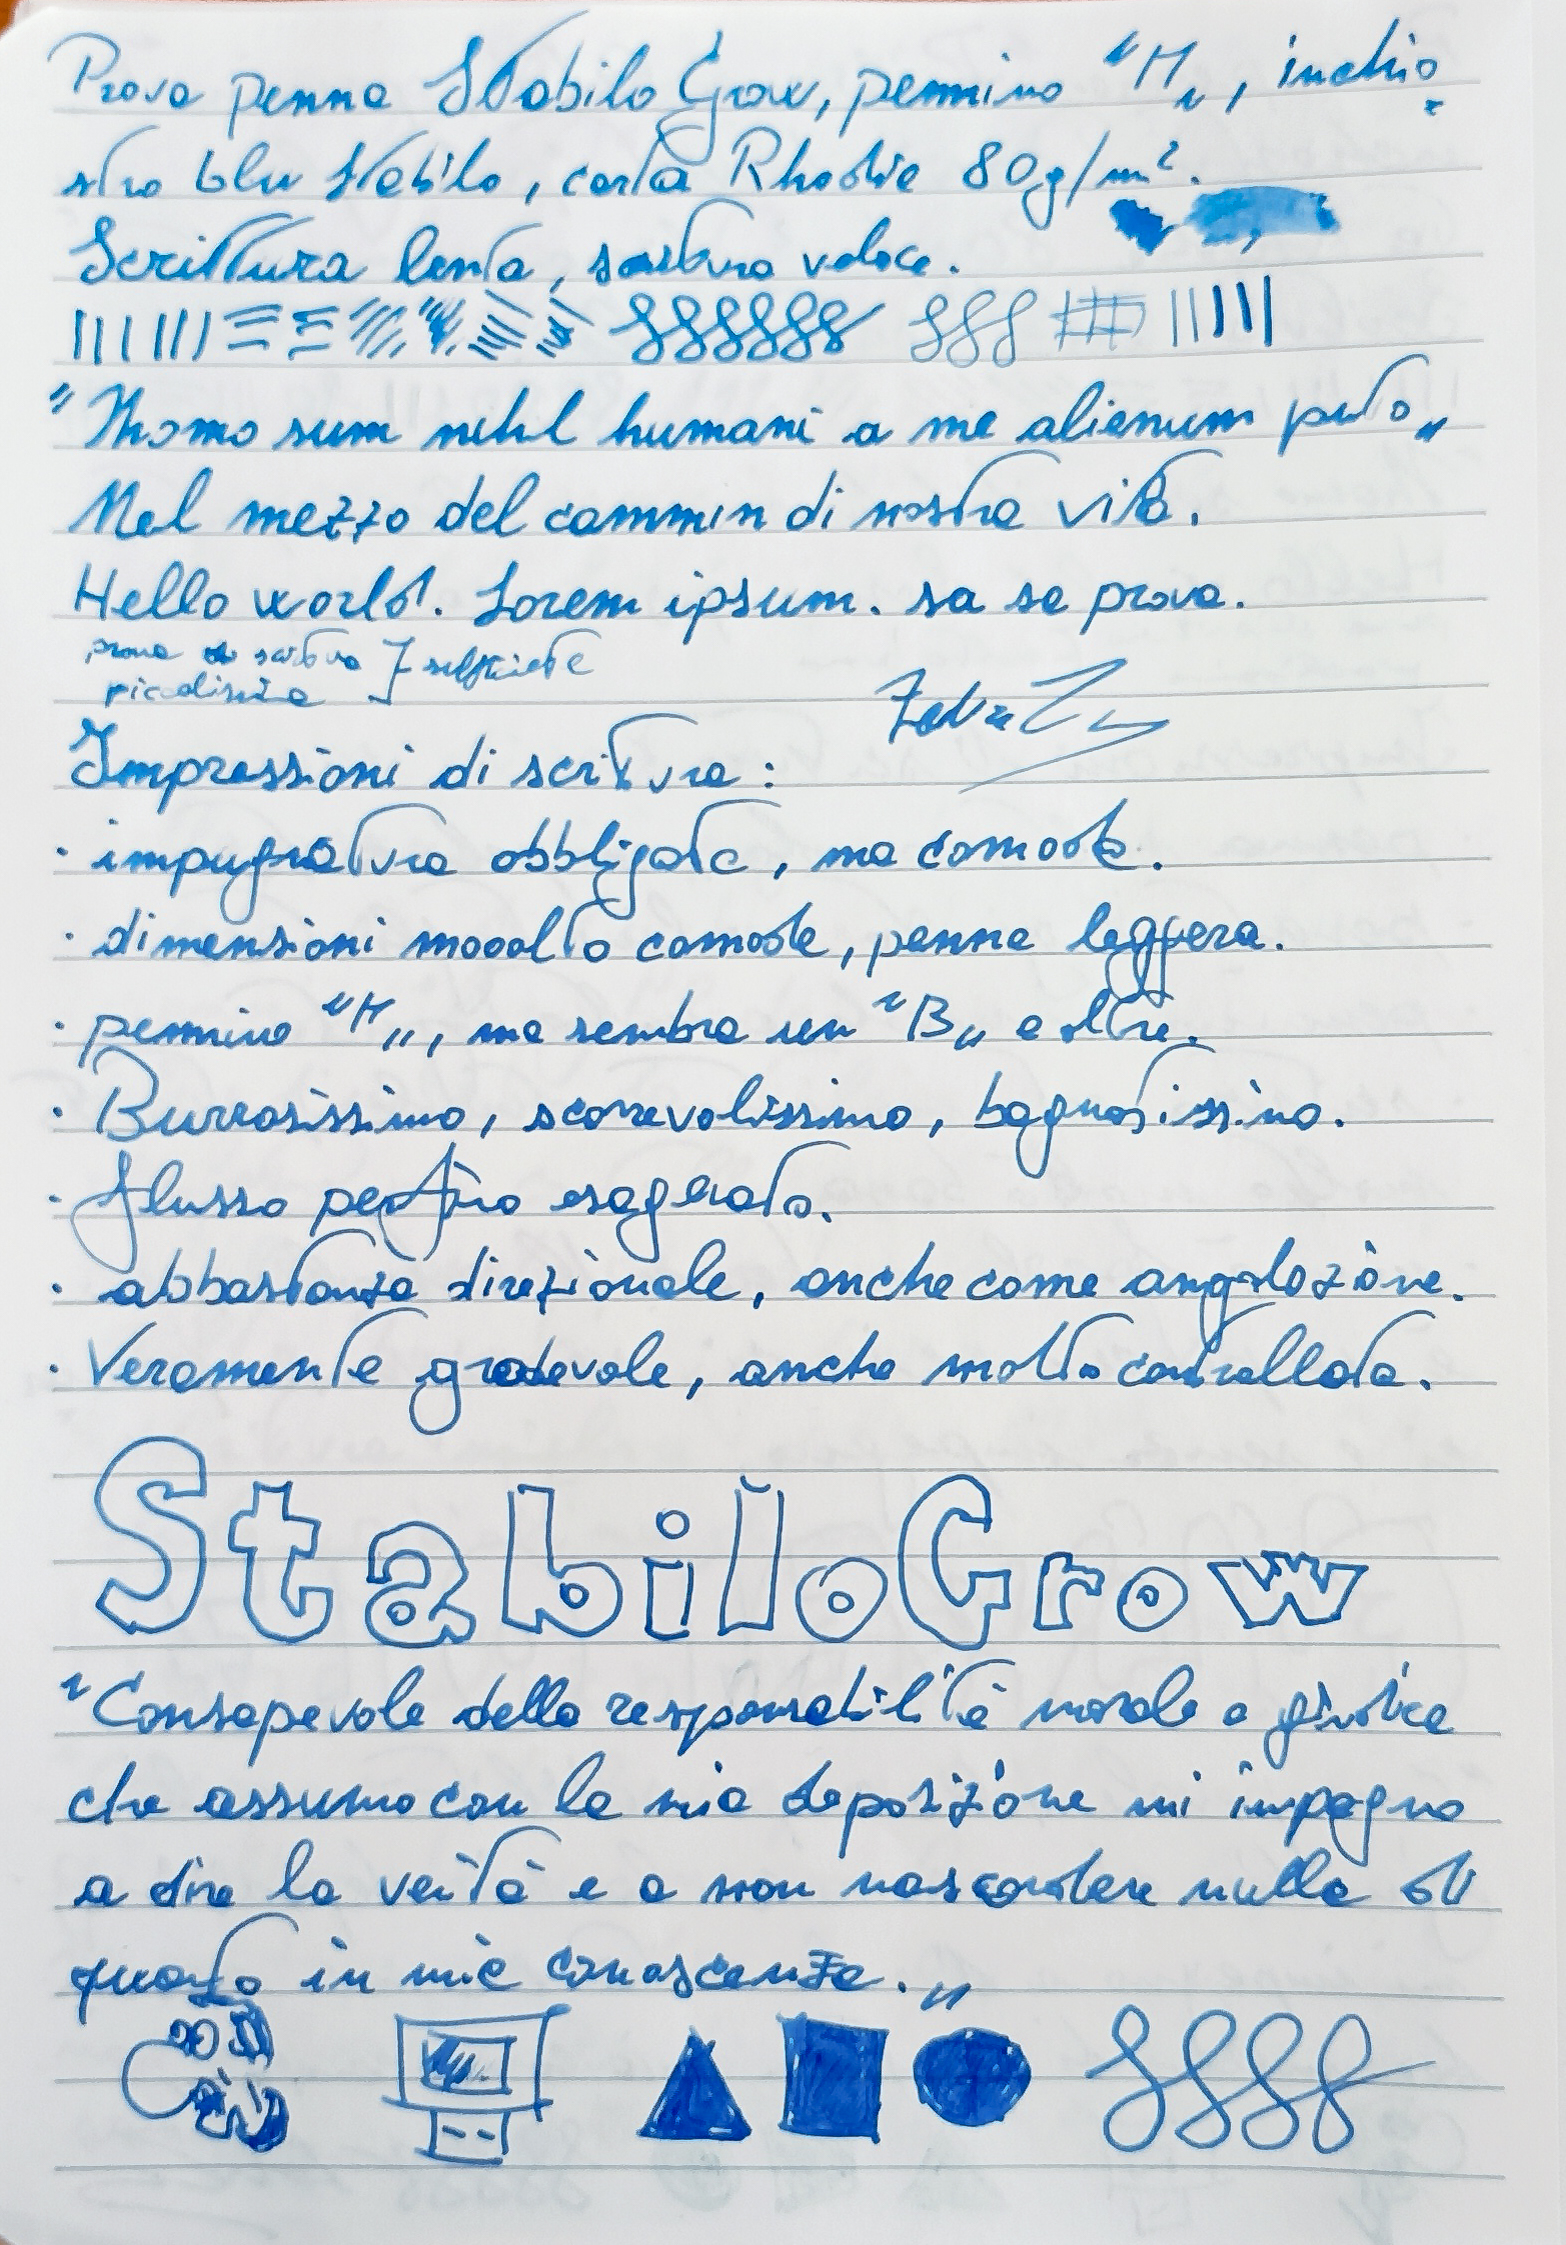 Prova penna Stabilo Grow, pennino "M", inchio
stro blu Stabilo, carta Rhodia 80g/m².
Scrittura lenta, scrittura veloce.
"Homo sum nihil humani a me alienum puto"
Nel mezzo del cammin di nostra vita.
Hello world! Lorem ipsum. sa se prova.
prova di scrittura
piccolissima
Impressioni di scrittura:
· impugnatura obbligata, ma comoda.
· dimensioni mooolto comode, penna leggera.
· pennino "M", ma sembra un "B" e oltre.
· Burrosissimo, scorrevolissimo, bagnatissimo.
· flusso perfino esagerato.
· abbastanza direzionale, anche come angolazione.
· Veramente gradevole, anche molto controllata.
StabiloGrow
"Consapevole della responsabilità morale e giuridica
che assumo con la mia deposizione mi impegno
a dire la verità e a non nascondere nulla di
quanto in mia conoscenza."